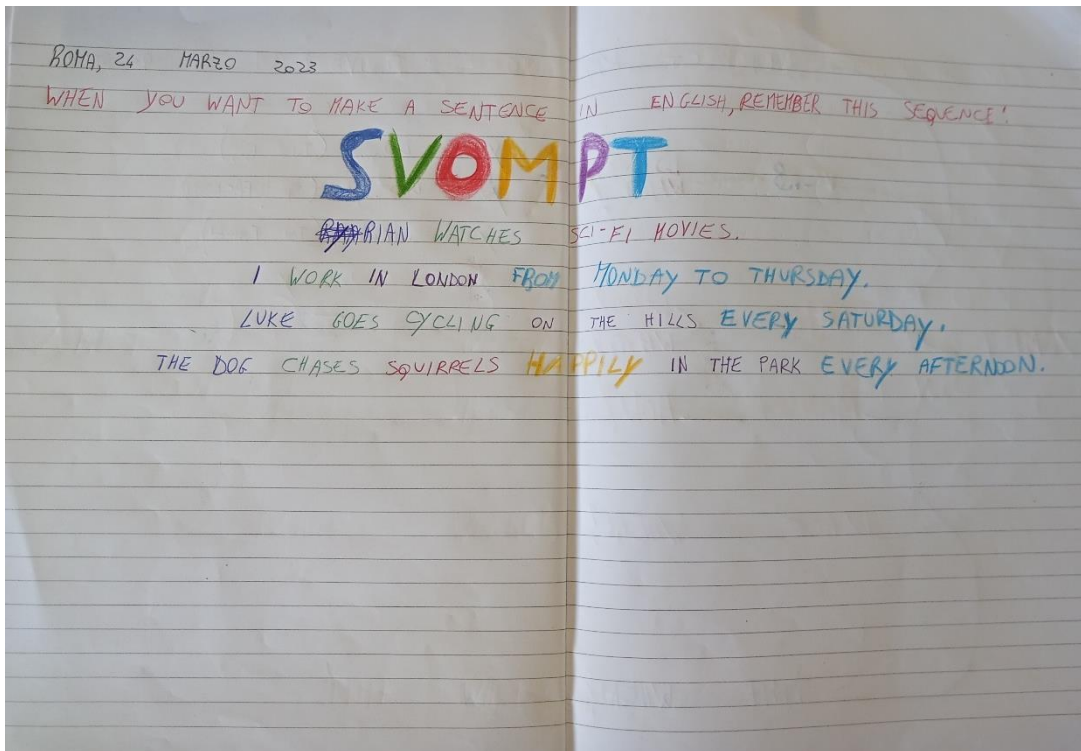 ROMA, 24 MARZO 2023
WHEN YOU WANT TO MAKE A SENTENCE IN ENGLISH, REMEMBER THIS SEQUENCE!
SVOMPT
RIAN WATCHES SCI-FI MOVIES.
I WORK IN LONDON FROM MONDAY TO THURSDAY.
LUKE GOES CYCLING ON THE HILLS EVERY SATURDAY.
THE DOG CHASES SQUIRRELS HAPPILY IN THE PARK EVERY AFTERNOON.